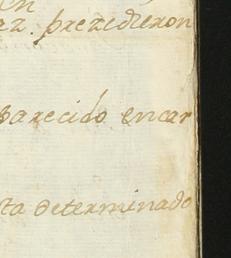 en
az. prezedieron
parecido encar
ta determinado